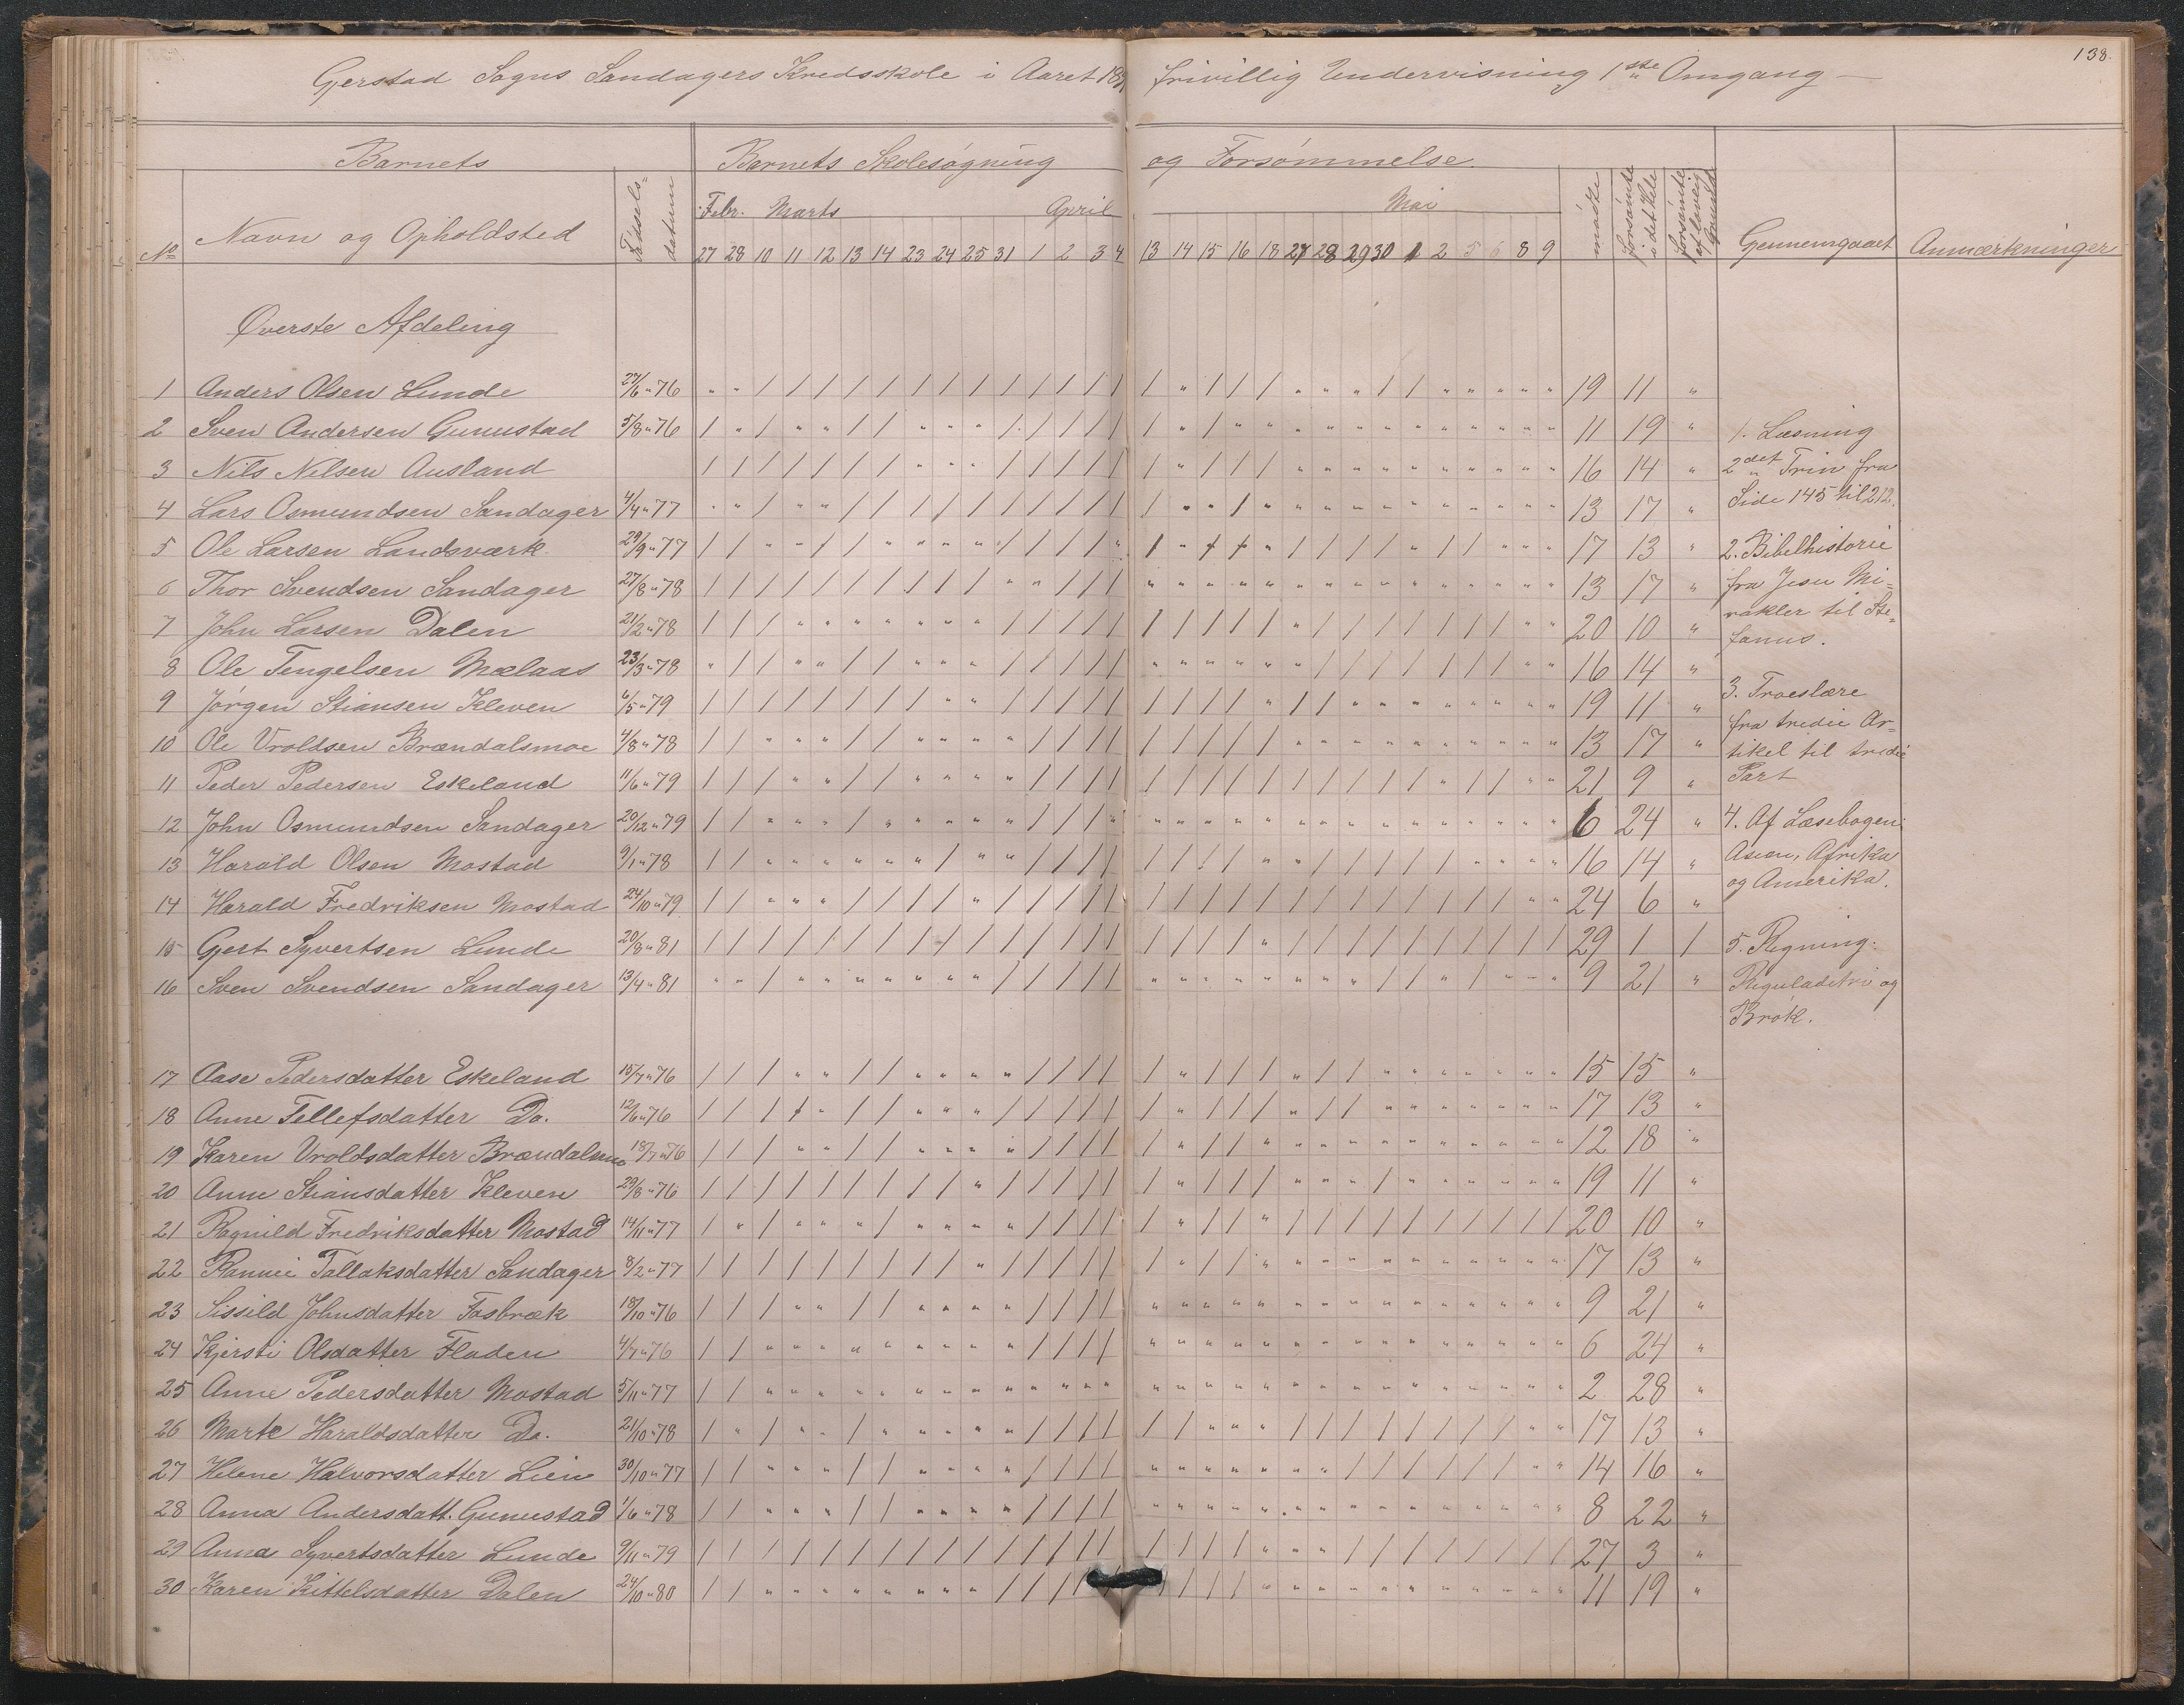 138.
Gjerstad Sogns Sandagers Kredsskole i Aaret 189 frivillig Undervisning 1ste Omgang
Barnets Barnets Skolesøgning og Forsømmelse
No Navn og Opholdsted Fødsels= datum Febr. Marts April Mai mødte forsømte i det Hele forsømte af lovlig Grund Gennemgaaet Anmærkninger
27 28 10 11 12 13 14 23 24 25 31 1 2 3 4 13 14 15 16 18 27 28 29 30 1 2 5 6 8 9
Øverste Afdeling
1 Anders Olsen Lunde 27/6 " 76 19 11 "
2 Sven Andersen Gunustad 5/8 " 76 11 19 "
3 Nils Nilsen Ausland 16 14 "
4 Lars Osmundsen Sandager 4/4 " 77 13 17 "
5 Ole Larsen Landsværk 29/9 " 77 17 13 "
6 Thor Svendsen Sandager 27/8 " 78 13 17 "
7 John Larsen Dalen 21/2 " 78 20 10 "
8 Ole Tengelsen Mælaas 23/3 " 78 16 14 "
9 Jørgen Stiansen Kleven 6/5 " 79 19 11 "
10 Ole Vroldsen Brændalsmoe 4/8 " 78 13 17 "
11 Peder Pedersen Eskeland 11/6 " 79 21 9 "
12 John Osmundsen Sandager 20/12 " 79 6 24 "
13 Harald Olsen Mostad 9/1 " 78 16 14 "
14 Harald Fredriksen Mostad 24/10 " 79 24 6 "
15 Gjert Syvertsen Lunde 20/8 " 81 29 1 1
16 Sven Svendsen Sandager 13/4 " 81 9 21 "
17 Aase Pedersdatter Eskeland 15/7 " 76 15 15 "
18 Anne Tellefsdatter Do. 12/6 " 76 17 13 "
19 Karen Vroldsdatter Brændalsmo 18/7 " 76 12 18 "
20 Anne Stiansdatter Kleven 29/8 " 76 19 11 "
21 Ragnild Fredriksdatter Mostad 14/11 " 77 20 10 "
22 Rannei Tallaksdatter Sandager 8/2 " 77 17 13 "
23 Sissild Johnsdatter Fosbræk 18/10 " 76 9 21 "
24 Kjersti Olsdatter Fladen 4/7 " 76 6 24 "
25 Anne Pedersdatter Mostad 5/11 " 77 2 28 "
26 Marte Haraldsdatter Do. 21/10 " 78 17 13 "
27 Helene Halvorsdatter Lien 30/10 " 77 14 16 "
28 Anna Andersdatt. Gunustad 1/6 " 78 8 22 "
29 Anna Syvertsdatter Lunde 9/11 " 79 27 3 "
30 Karen Kittelsdatter Dalen 24/10 " 80 11 19 "
1. Læsning
2det Trin fra
Side 145 til 212.
2. Bibelhistorie
fra Jesu Mi=
rakler til Ste=
fanus.
3. Troeslære
fra tredie Ar=
tikel til tredie
Part
4. Af Læsebogen:
Asien, Afrika
og Amerika.
5. Regning:
Reguladetri og
Brøk.